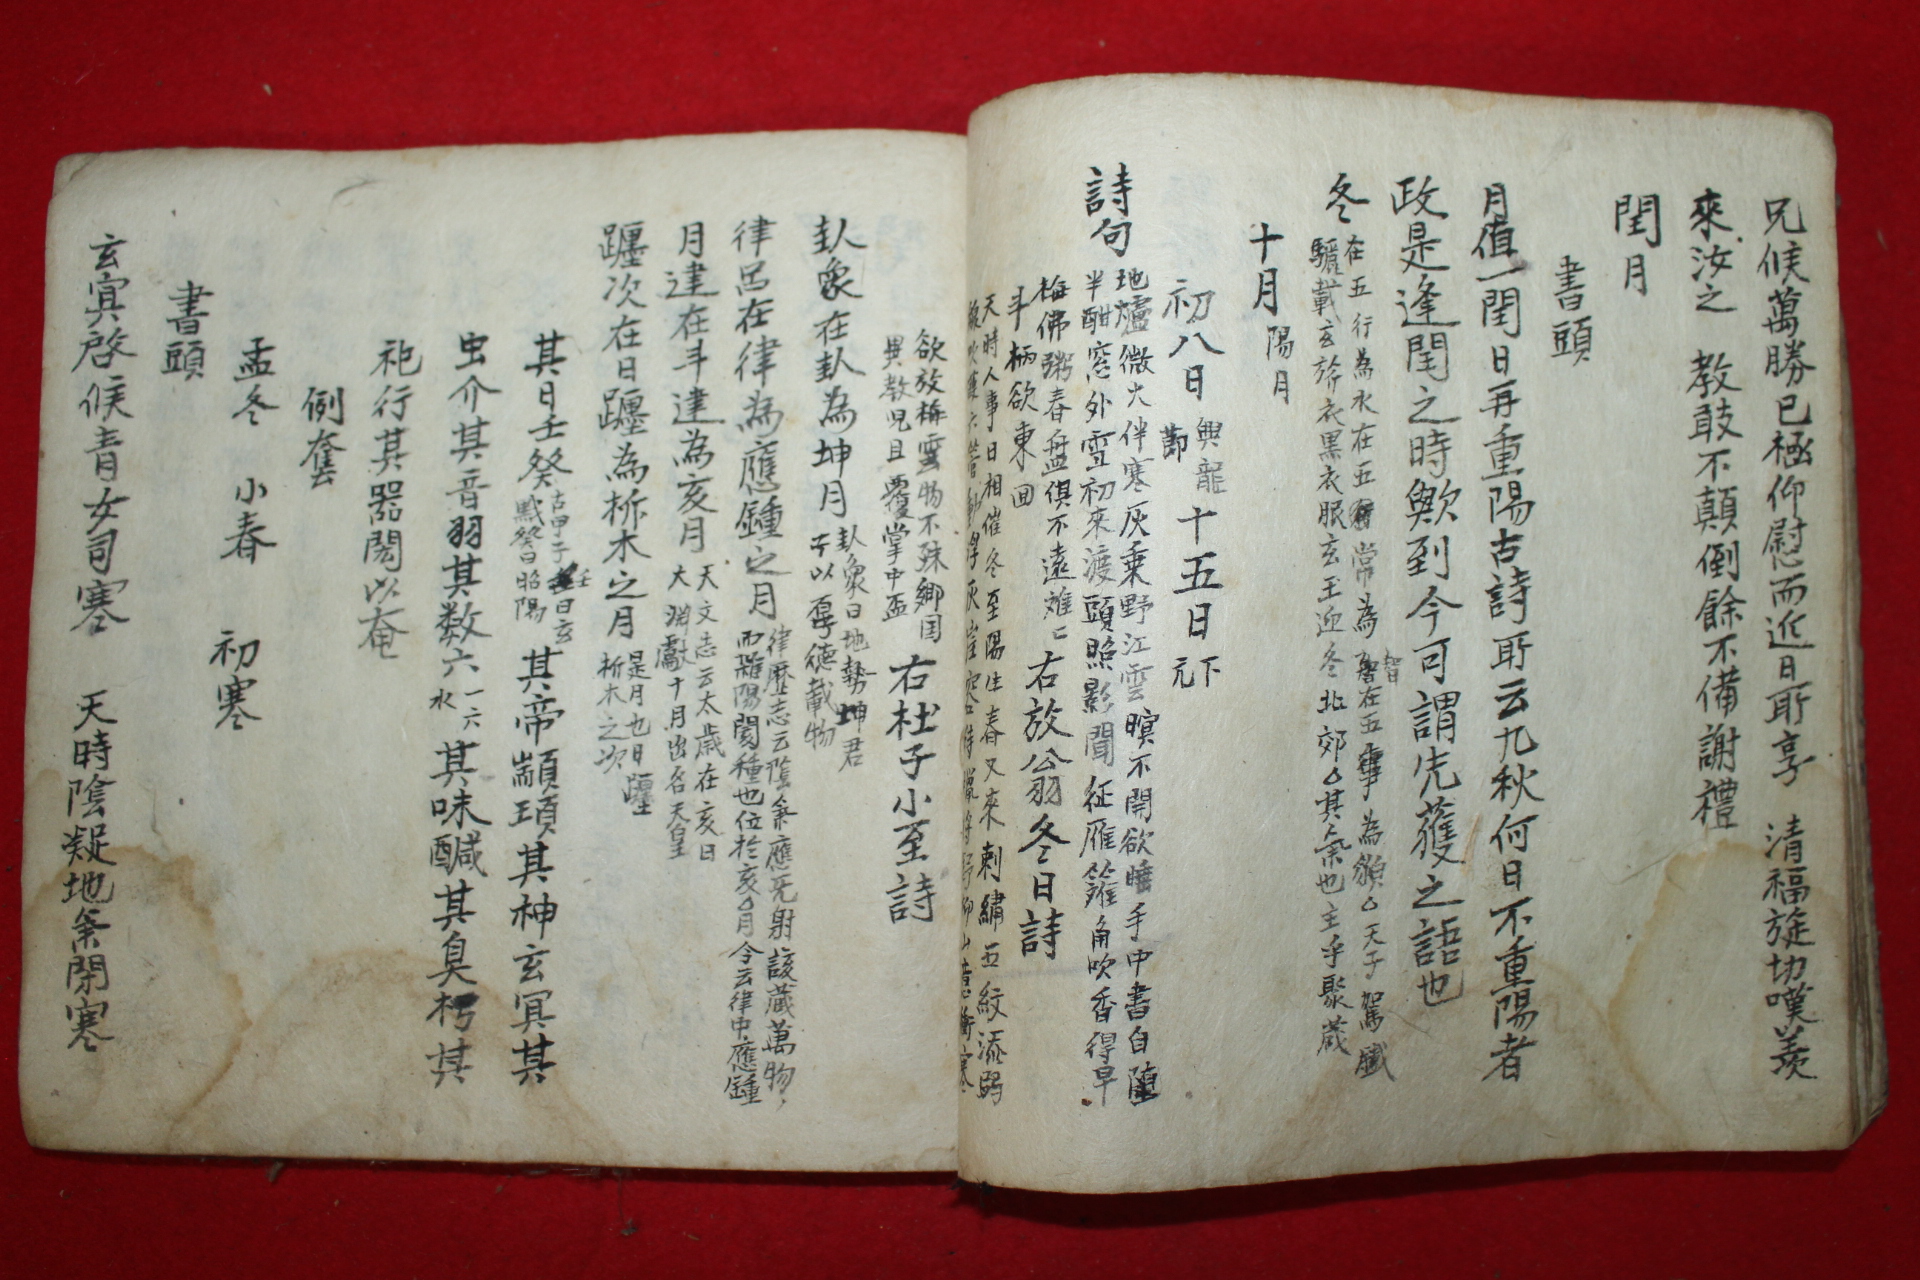 兄候萬勝已極仰慰而近日所享 清福旋切嘆羨
來汝之 教敢不顛倒餘不備謝禮
閏月
書頭
月値一閏日再重陽古詩所云九秋何日不重陽者
政是逢閏之時歟到今可謂先蒦之語也
冬
在五行為水在五常為智在五事為 天子駕
驪載玄旂衣黒衣服玄玉迎冬北郊 其氣也主乎聚藏
十月 陽月
初八日 興龍節 十五日 下元
詩句
地爐微火伴寒灰乗野江雲暝不開欲睡手中書自墮
半酣窓外雪初來渡頭照影聞征雁籬角吹香得早
梅佛粥春盤俱不遠難亡
斗柄欲東回
右放翁冬日詩
天時人事日相催冬至陽生春又來刺繡五紋添弱
線吹葭六管動浮灰岸容待臘將舒柳山意衝寒
欲放梅雲物不殊鄉国
異教兒且覆掌中盃
右杜子小至詩
卦象在卦為坤月
卦象曰地勢坤君
子以厚德載物
律呂在律為應鍾之月
律歷志云陰氣應无射該藏萬物
而雜陽閡種也位於亥 月令云律中應鍾
月建在斗建為亥月
天文志云太歲在亥曰
大淵獻十月出名天皇
躔次在日躔為析木之月
是月也日躔
析木之次
其日壬癸
古甲子壬曰玄
黓癸曰昭陽
其帝顓頊其神玄冥其
虫介其音羽其数六
一六
水
其味鹹其臭朽其
祀行其器閎以奄
例套
孟冬 小春 初寒
書頭
玄冥啓候青女司寒 天時陰凝地氣閉寒